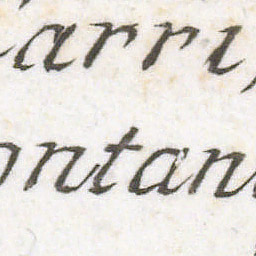 arri,
ontan